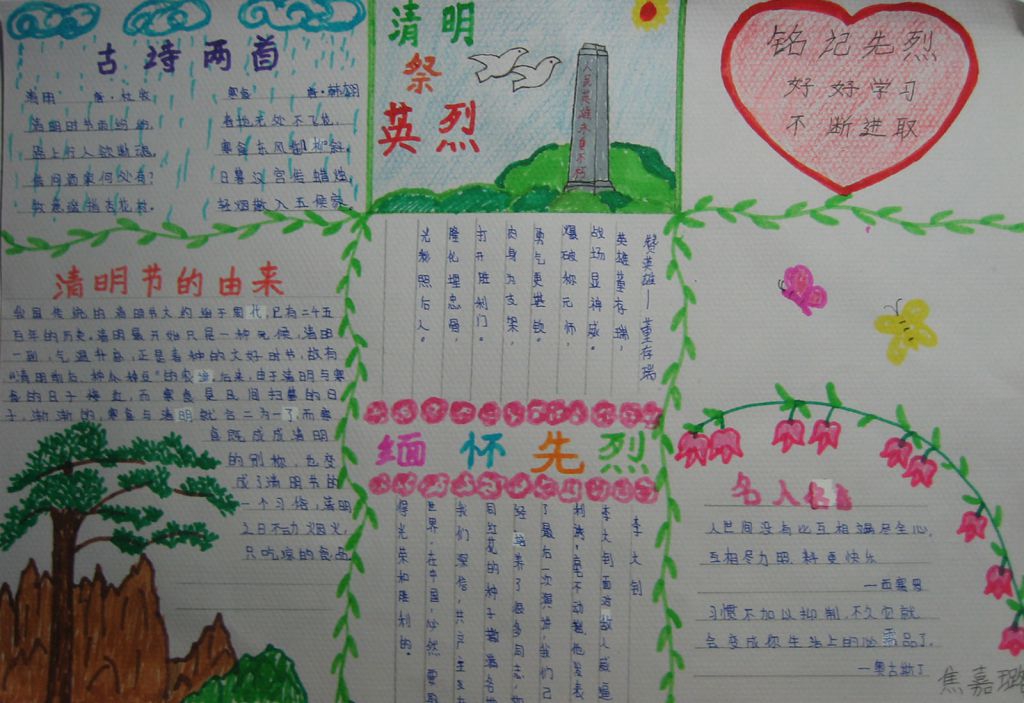 古诗两首
清明 唐·杜牧
清明时节雨纷纷,
路上行人欲断魂。
借问酒家何处有?
牧童遥指杏花村。
寒食 唐·韩翃
春城无处不飞花,
寒食东风御柳斜。
日暮汉宫传蜡烛,
轻烟散入五侯家。
清明
祭
英烈
人民英雄永垂不朽
铭记先烈
好好学习
不断进取
清明节的由来
我国传统的清明节大约始于周代,已有二千五
百年的历史。清明最开始只是一种节候,清明
一到,气温升高,正是春种的大好时节,故有
"清明前后,种瓜种豆"的农谚。后来,由于清明与寒
食的日子接近,而寒食是民间扫墓的日
子,渐渐的,寒食与清明就合二为一了,而寒
食既成成清明
的别称,也变
成了清明节的
一个习俗,清明
之日不动烟火,
只吃凉的食品
赞英雄—董存瑞
英雄董存瑞,
战场显神威。
爆破称元帅,
勇气更堪钦。
肉身为支架,
打开胜利门。
隆化埋忠骨,
光彩照后人。
缅怀先烈
李大钊
李大钊面对敌人威逼
利诱,毫不动摇。他发表
了最后一次演讲,我们已
经培养了很多同志,如
同红花的种子撒满各地
我们深信,共产主义在
世界、在中国,必然要取
得光荣和胜利的。
名人名言
人世间没有比互相竭尽全心,
互相尽力照料更快乐
—西塞罗
习惯不加以抑制,不久它就
会变成你生活上的必需品了。
—奥古斯丁
焦嘉璐